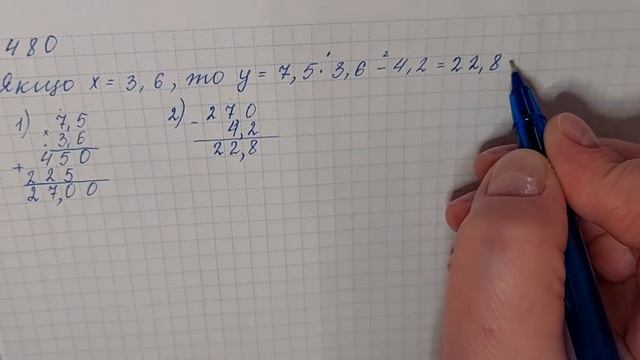 480
Якщо x = 3,6, то y = 7,5 · 3,6 − 4,2 = 22,8
1) 7,5
× 3,6
450
+ 225
27,00
2) − 270
4,2
22,8